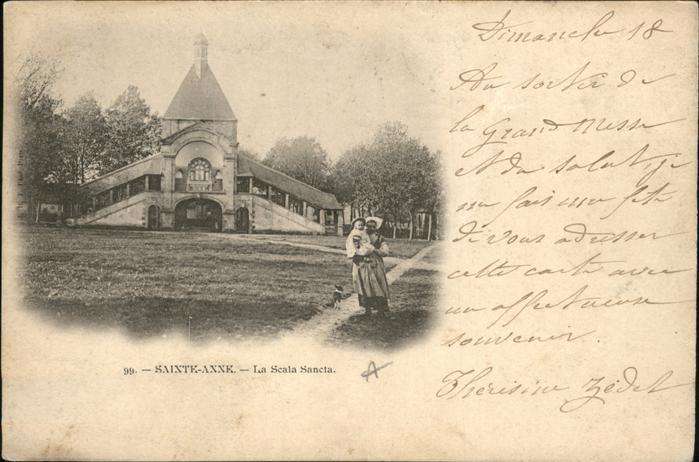 Dimanche 18
Au sortir de
la Grand Messe
et du salut, je
me fais une fête
de vous adresser
cette carte avec
un affectueux
souvenir.
Thérésine
99. — SAINTE-ANNE. — La Scala Sancta.
A